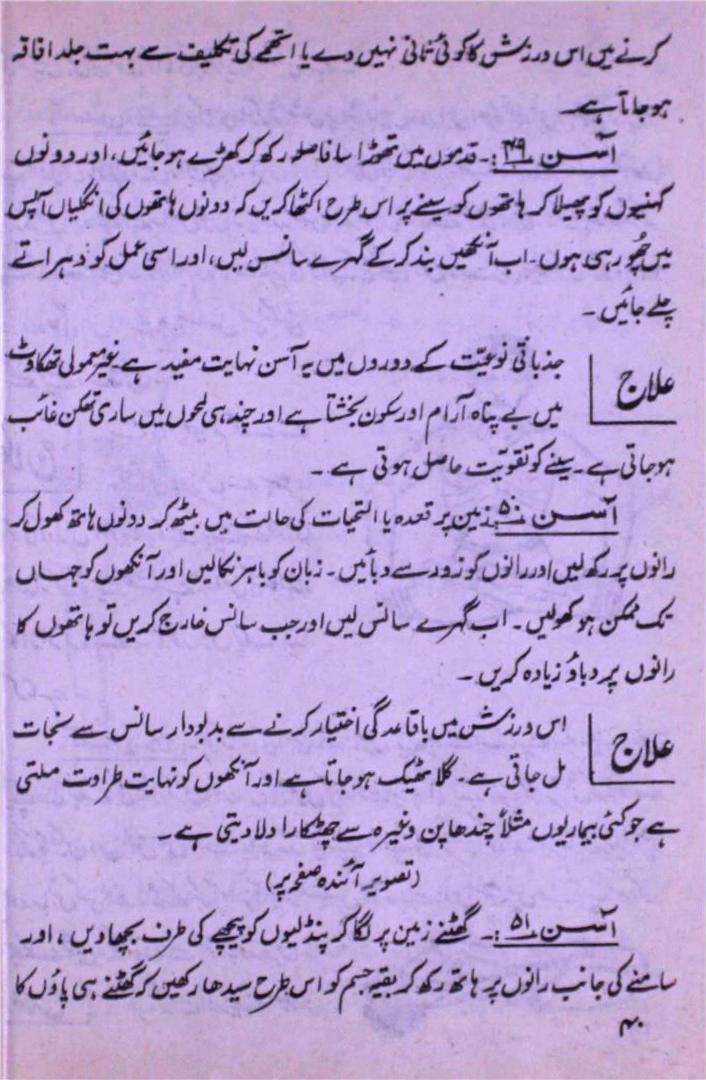 کرنے میں اس ورزش کا کوئی ثانی نہیں دے یا اتھے کی تکلیف سے بہت جلد افاقہ
ہو جاتا ہے۔
آسن ۴۹:۔ قدموں میں تھوڑا سا فاصلہ رکھ کر کھڑے ہو جائیں، اور دونوں
کہنیوں کو پھیلا کر ہاتھوں کو سینے پر اس طرح اکٹھا کریں کہ دونوں ہاتھوں کی انگلیاں آپس
میں چھو رہی ہوں۔ اب آنکھیں بند کر کے گہرے سانس لیں، اور اسی عمل کو دہراتے
چلے جائیں۔
علاج
جذباتی نوعیّت کے دوروں میں یہ آسن نہایت مفید ہے۔ غیر معمولی تھکاوٹ
میں بے پناہ آرام اور سکون بخشتا ہے اور چند ہی لمحوں میں ساری تھکن غائب
ہو جاتی ہے۔ سینے کو تقویت حاصل ہوتی ہے۔
آسن ۵۰:۔ زمین پر قعدہ یا التحیات کی حالت میں بیٹھ کر دونوں ہاتھ کھول کر
رانوں پر رکھ لیں اور رانوں کو زور سے دبائیں۔ زبان کو باہر نکالیں اور آنکھوں کو جہاں
تک ممکن ہو کھولیں۔ اب گہرے سانس لیں اور جب سانس خارج کریں تو ہاتھوں کا
رانوں پر دباؤ زیادہ کریں۔
علاج
اس ورزش میں باقاعدگی اختیار کرنے سے بدبودار سانس سے نجات
مل جاتی ہے۔ گلا ٹھیک ہو جاتا ہے اور آنکھوں کو نہایت طراوت ملتی
ہے جو کئی بیماریوں مثلاً چندھاپن وغیرہ سے چھٹکارا دلا دیتی ہے۔
(تصویر آئندہ صفحہ پر)
آسن ۵۱:۔ گھٹنے زمین پر لگا کر پنڈلیوں کو پیچھے کی طرف بچھا دیں، اور
سامنے کی جانب رانوں پر ہاتھ رکھ کر بقیہ جسم کو اس طرح سیدھا رکھیں کہ گھٹنے ہی پاؤں کا
۴۰